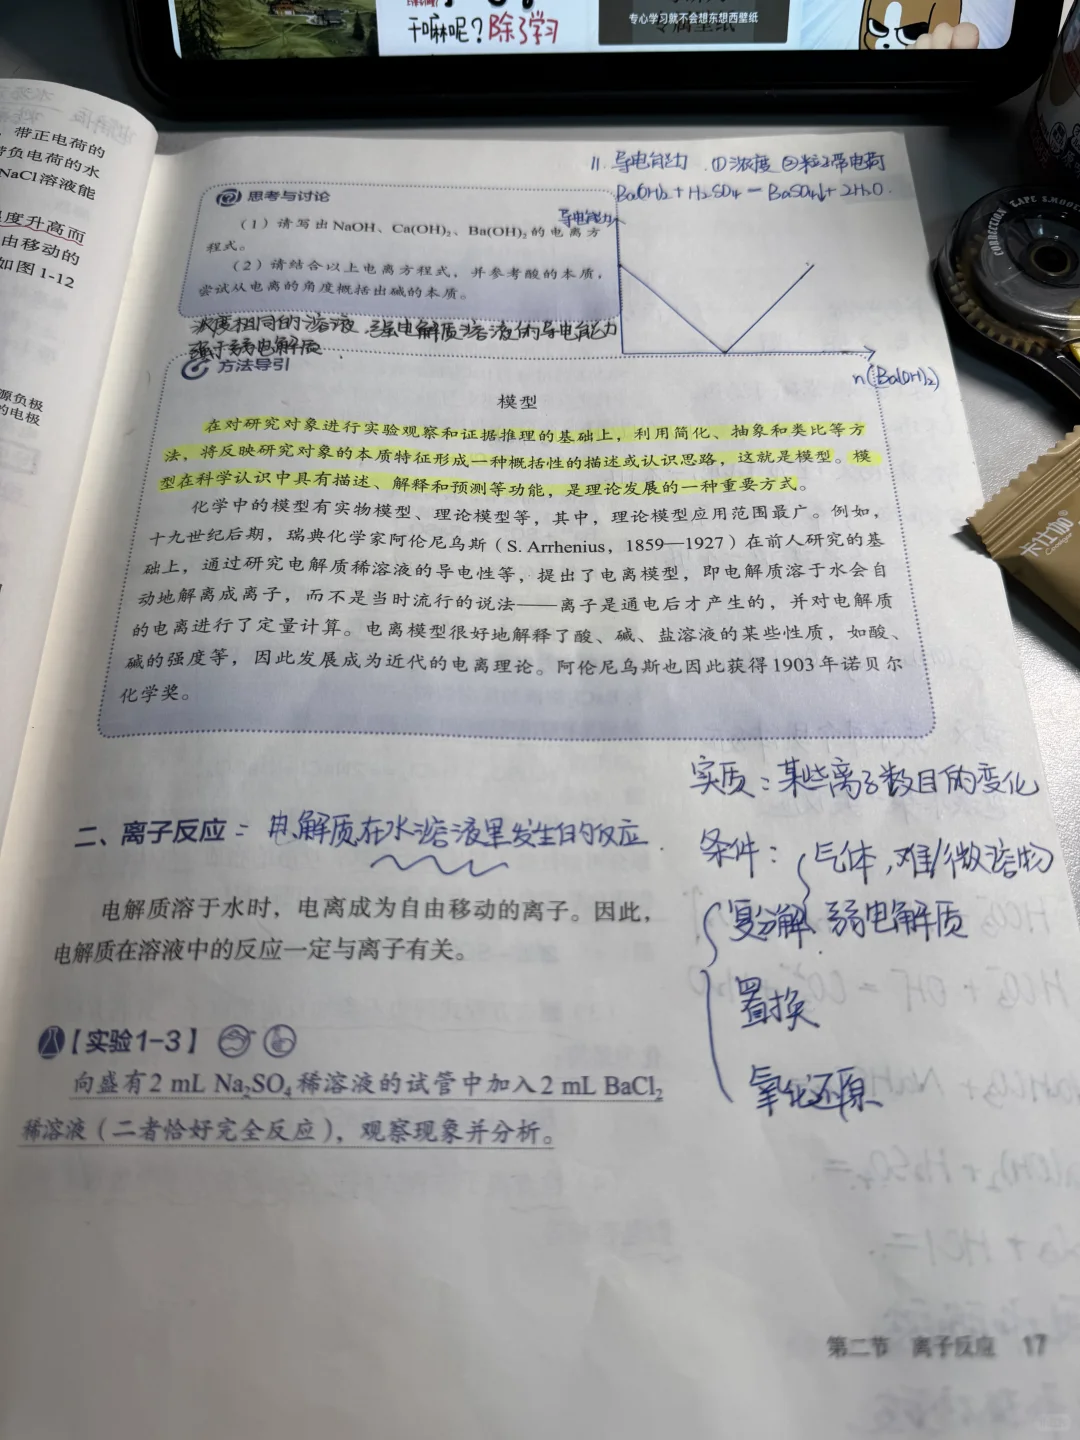 干嘛呢？除了学习
专心学习就不会想东想西壁纸
带正电荷的
带负电荷的水
NaCl溶液能
度升高而
由移动的
如图1-12
源负极
的电极
11. 导电能力 ①浓度 ②粒子带电荷
Ba(OH)₂ + H₂SO₄ = BaSO₄↓ + 2H₂O.
导电能力
n(Ba(OH)₂)
思考与讨论
（1）请写出NaOH、Ca(OH)₂、Ba(OH)₂的电离方
程式。
（2）请结合以上电离方程式，并参考酸的本质，
尝试从电离的角度概括出碱的本质。
浓度相同的溶液，强电解质溶液的导电能力
强于弱电解质
方法导引
模型
在对研究对象进行实验观察和证据推理的基础上，利用简化、抽象和类比等方
法，将反映研究对象的本质特征形成一种概括性的描述或认识思路，这就是模型。模
型在科学认识中具有描述、解释和预测等功能，是理论发展的一种重要方式。
化学中的模型有实物模型、理论模型等，其中，理论模型应用范围最广。例如，
十九世纪后期，瑞典化学家阿伦尼乌斯（S. Arrhenius，1859—1927）在前人研究的基
础上，通过研究电解质稀溶液的导电性等，提出了电离模型，即电解质溶于水会自
动地解离成离子，而不是当时流行的说法——离子是通电后才产生的，并对电解质
的电离进行了定量计算。电离模型很好地解释了酸、碱、盐溶液的某些性质，如酸、
碱的强度等，因此发展成为近代的电离理论。阿伦尼乌斯也因此获得1903年诺贝尔
化学奖。
实质：某些离子数目的变化
二、离子反应：电解质在水溶液里发生的反应.
条件：气体，难/微溶物
复分解 弱电解质
置换
氧化还原
电解质溶于水时，电离成为自由移动的离子。因此，
电解质在溶液中的反应一定与离子有关。
【实验1-3】
向盛有2 mL Na₂SO₄稀溶液的试管中加入2 mL BaCl₂
稀溶液（二者恰好完全反应），观察现象并分析。
第二节 离子反应 17
CORRECTION TAPE
卡比加